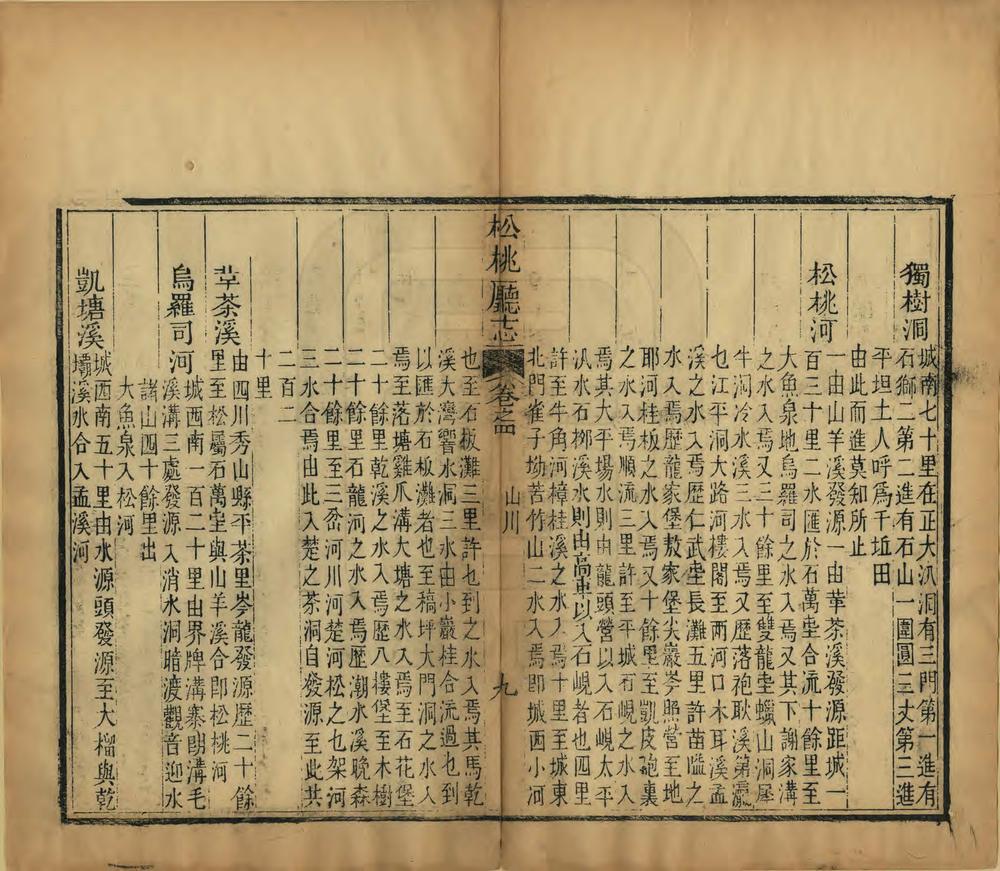 獨樹洞
城南七十里在正大汛洞有三門第一進有
石獅二第二進有石山一圍圓三丈第三進
平坦土人呼爲千坵田
由此而進莫知所止
松桃河
一由山羊溪發源一由葦茶溪發源距城一
百三十里二水匯於石萬坣合流十餘里至
大魚泉地烏羅司之水入焉又其下謝家溝
之水入焉又三十餘里至雙龍坣蠟山洞犀
牛洞冷水溪三水入焉又歷落袍耿溪第瀛
也江平洞大路河樓閣至两河口木耳溪孟
溪之水入焉歷仁武坣長灘五里許苗隘之
水入焉歷龍家堡敖家堡尖巖岑照營至地
耶河桂板之水入焉又十餘里至凱皮砲裏
之水入焉順流三里許至平城石峴之水入
焉其大平場水則由龍頭營以入石峴太平
汛水石柳水則由高東以入石峴者也四里
許至牛角河樟桂溪之水入焉十里至城東
北門雀子坳苦竹山二水入焉即城西小河
松桃廳志
卷之四
山川
九
也至石板灘三里許也到之水入焉其馬乾
溪大灣響水洞三水由小巖桂合流過也到
以匯於石板灘者也至稿坪大門洞之水入
焉至落塘雞爪溝大塘之水入焉至石花堡
二十餘里乾溪之水入焉歷八樓堡至木樹
二十餘里石龍河之水入焉歷潮水溪晚森
二十餘里至三岔河川河楚河松之也架河
三水合焉由此入楚之茶洞自發源至此共
二百二
十里
草茶溪
由四川秀山縣平茶里岑龍發源歷二十餘
里至松屬石萬坣與山羊溪合即松桃河
烏羅司河
城西南一百二十里由界牌溝寨朗溝毛
溪溝三處發源入消水洞暗渡觀音迎水
諸山四十餘里出
大魚泉入松河
凱塘溪
城西南五十里由水源頭發源至大榴與乾
壩溪水合入孟溪河